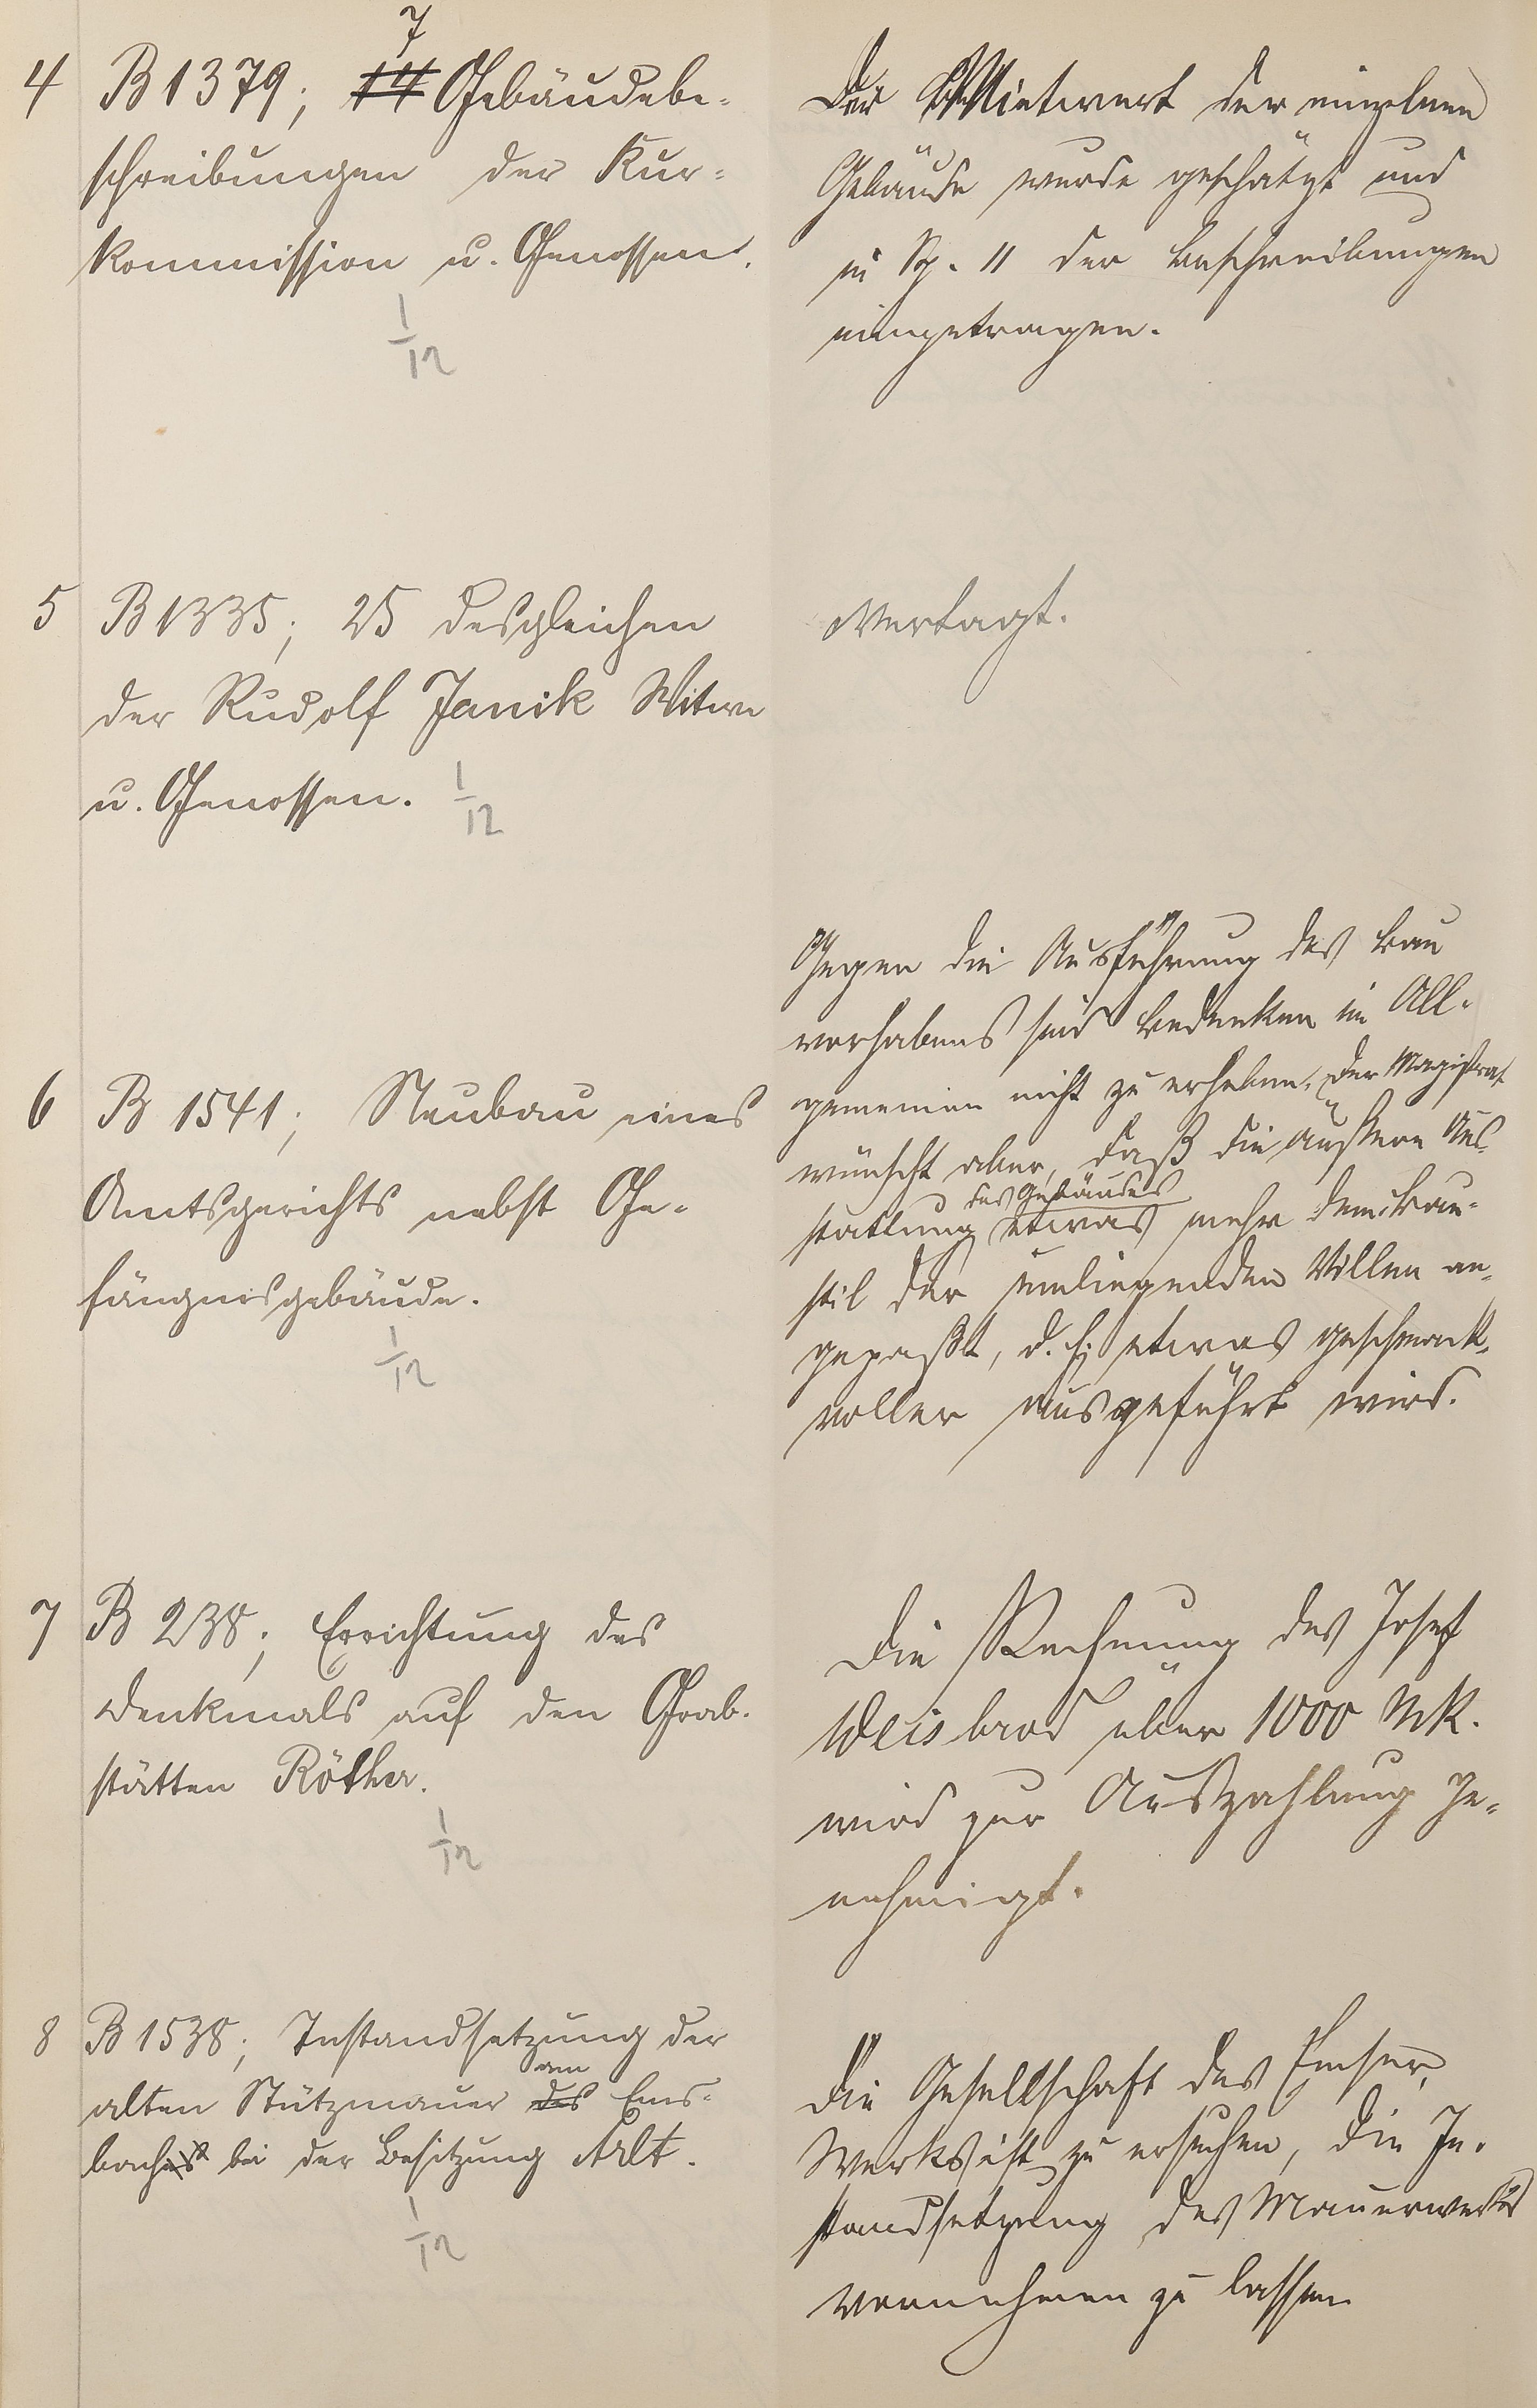 4 B 1379; 7 14 Gebäudebe-
schreibungen der Kur-
kommission u. Genossen.
1/12
Der Mietwert der einzelnen
Gebäude wurde geschätzt und
in Sp. 11 der Beschreibungen
eingetragen.
5 B 1335; 25 desgleichen
der Rudolf Janik Witwe
u. Genossen. 1/12
Vertagt.
6 B 1541; Neubau eines
Amtsgerichts nebst Ge-
fängnisgebäude.
1/12
Gegen die Ausführung des Bau
vorhabens sind Bedenken im All-
gemeinen nicht zu erheben. Der Magistrat
wünscht aber, daß die äußere Aus-
des Gebäudes
stattung etwas mehr dem Bau-
stil der umliegenden Villen an-
gepaßt, d. h. etwas geschmack-
voller ausgeführt wird.
7 B 238; Errichtung des
Denkmals auf den Grab-
stätten Röther.
1/12
Die Rechnung des Josef
Weisbrod über 1000 Mk.
wird zur Auszahlung ge-
nehmigt.
8 B 1538; Instandsetzung der
am
alten Stützmauer des Ems-
baches bei der Besitzung Arlt.
1/12
Die Gesellschaft des Emser
Werks ist zu ersuchen, die In-
standsetzung des Mauerwerks
vornehmen zu lassen